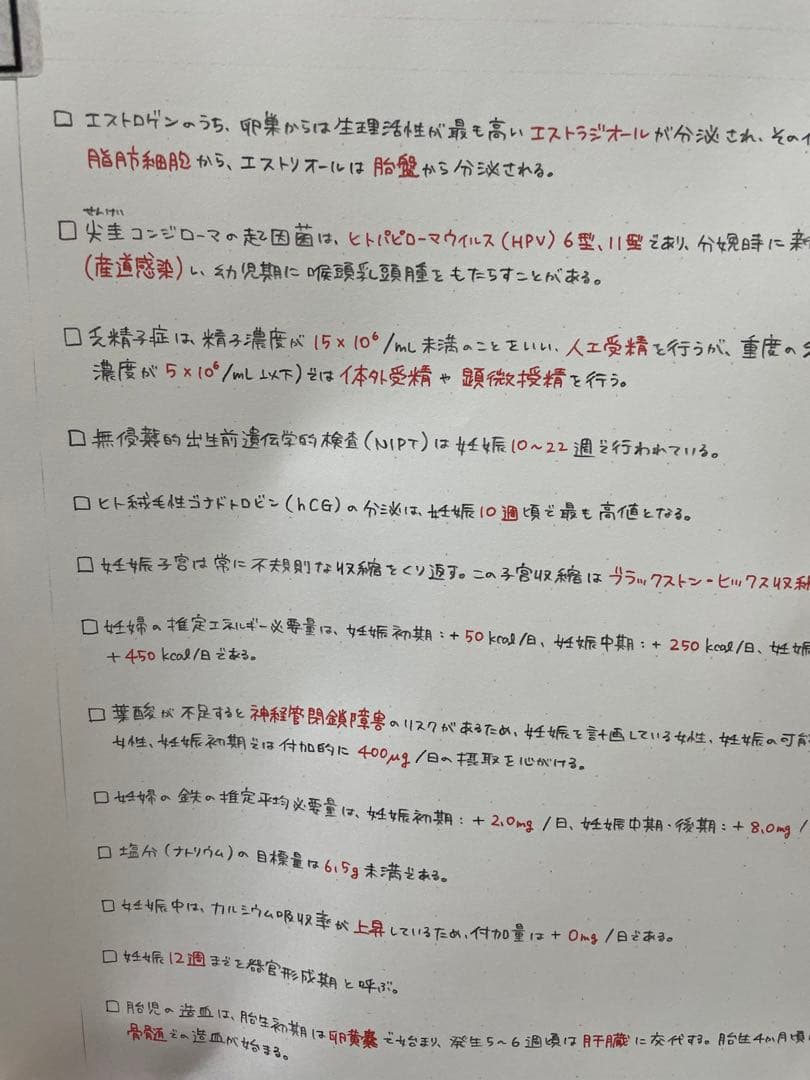 □ エストロゲンのうち、卵巣からは生理活性が最も高いエストラジオールが分泌され、その
脂肪細胞から、エストリオールは胎盤から分泌される。
せんけい
□ 尖圭コンジローマの起因菌は、ヒトパピローマウイルス(HPV) 6型、11型であり、分娩時に新
(産道感染)し、幼児期に喉頭乳頭腫をもたらすことがある。
□ 乏精子症は、精子濃度が 15×10⁶/mL未満のことをいい、人工受精を行うが、重度の
濃度が 5×10⁶/mL以下)では体外受精や顕微授精を行う。
□ 無侵襲的出生前遺伝学的検査(NIPT)は妊娠10〜22週で行われている。
□ ヒト絨毛性ゴナドトロピン(hCG)の分泌は、妊娠10週頃で最も高値となる。
□ 妊娠子宮は常に不規則な収縮をくり返す。この子宮収縮はブラックストン-ヒックス収縮
□ 妊婦の推定エネルギー必要量は、妊娠初期:+50kcal/日、妊娠中期:+250kcal/日、妊娠
+450kcal/日である。
□ 葉酸が不足すると神経管閉鎖障害のリスクがあるため、妊娠を計画している女性、妊娠の可能
女性、妊娠初期では付加的に400μg/日の摂取を心がける。
□ 妊婦の鉄の推定平均必要量は、妊娠初期:+2.0mg/日、妊娠中期・後期:+8.0mg/
□ 塩分(ナトリウム)の目標量は6.5g未満である。
□ 妊娠中は、カルシウム吸収率が上昇しているため、付加量は+0mg/日である。
□ 妊娠12週までを器官形成期と呼ぶ。
□ 胎児の造血は、胎生初期は卵黄嚢で始まり、発生5〜6週頃は肝臓に交代する。胎生4か月頃
骨髄での造血が始まる。